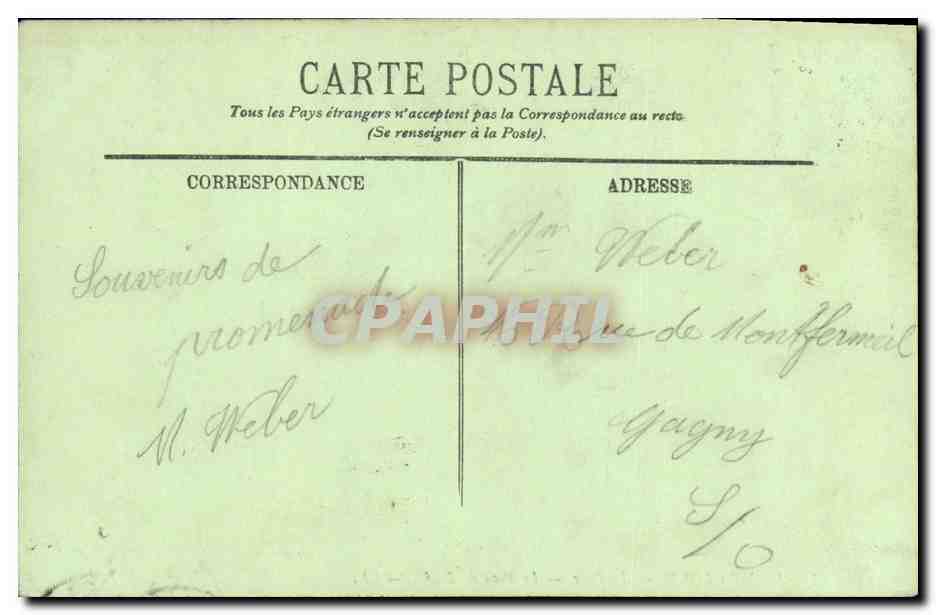 CARTE POSTALE
Tous les Pays étrangers n'acceptent pas la Correspondance au recto
(Se renseigner à la Poste).
CORRESPONDANCE
Souvenirs de
promenade
M. Weber
ADRESSE
Mr Weber
rue de Montfermeil
Gagny
S/O
CPAPHIL